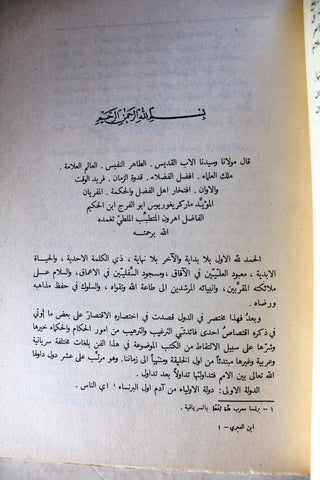 بسم الله الرحمن الرحيم
قال مولانا وسيدنا الاب القديس . الطاهر النفيس . العالم العلامة .
ملك العلماء . افضل الفضلاء . قدوة الزمان . فريد الوقت
والاوان . افتخار اهل الفضل والحكمة . المفريان
المؤيد ماركريغوريوس ابو الفرج ابن الحكيم
الفاضل اهرون المتطبب الملطي تغمده
الله برحمته
الحمد لله الاول بلا بداية والآخر بلا نهاية ، ذي الكلمة الاحدية ، والحياة
الابدية ، معبود العليين في الآفاق ، ومسجود السفليين في الاعماق ، والسلام على
ملائكته المقربين ، وانبيائه المرشدين الى طاعة الله وتقواه ، والسلوك في حفظ مذاهبه
ورضاه .
وبعد فهذا مختصر في الدول قصدت في اختصاره الاقتصار على بعض ما أوتي في
ذكره اقتصاص احدى فائدتي الترغيب والترهيب من امور الحكام والحكماء خيرها
وشرها على سبيل الالتقاط من الكتب الموضوعة في هذا الفن بلغات مختلفة سريانية
وعربية وغيرها مبتدئاً من اول الخليقة ومنتهياً الى زماننا. وهو مرتب على عشر دول داولها
الله تعالى بين الامم فتداولتها تداولاً بعد تداول .
الدولة الاولى : دولة الاولياء من آدم اول البرنساء ١ اي الناس .
١ – برنسا معرب بالسريانية .
ابن العبري – ١